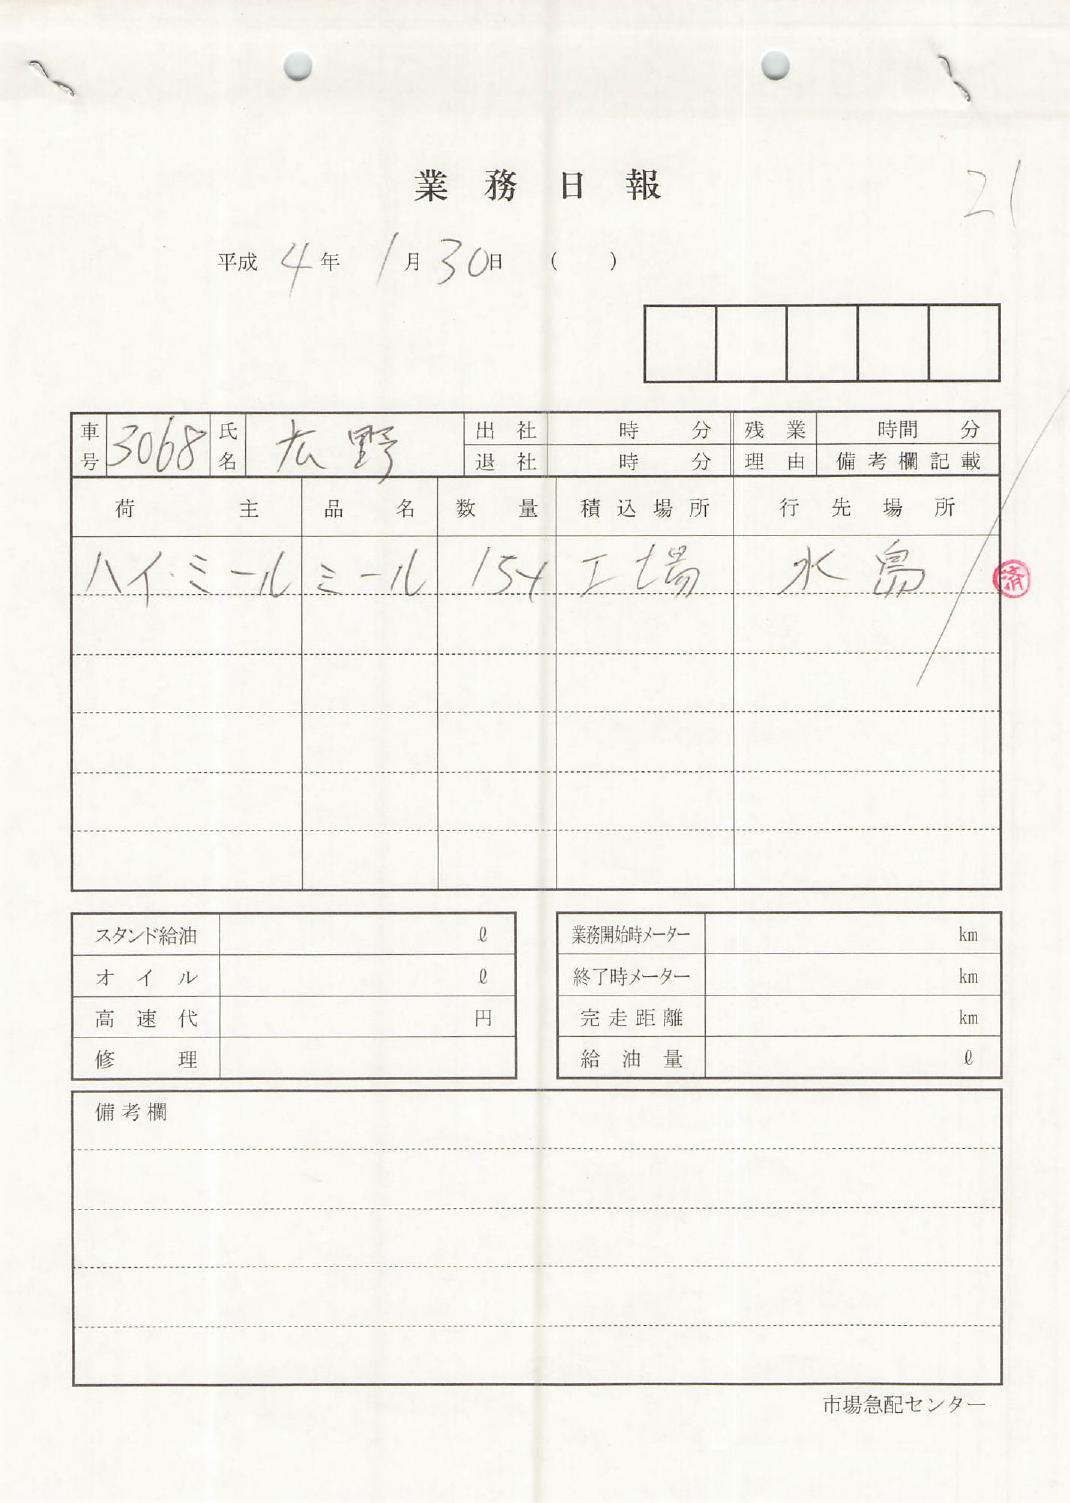 業務日報
21
平成4年1月30日 ( )
車号 3068 氏名 広野 出社 時 分 残業 時間 分
退社 時 分 理由 備考欄記載
荷主 品名 数量 積込場所 行先場所
ハイ・ミール ミール 15t 工場 水島
済
スタンド給油 ℓ 業務開始時メーター km
オイル ℓ 終了時メーター km
高速代 円 完走距離 km
修理 給油量 ℓ
備考欄
市場急配センター